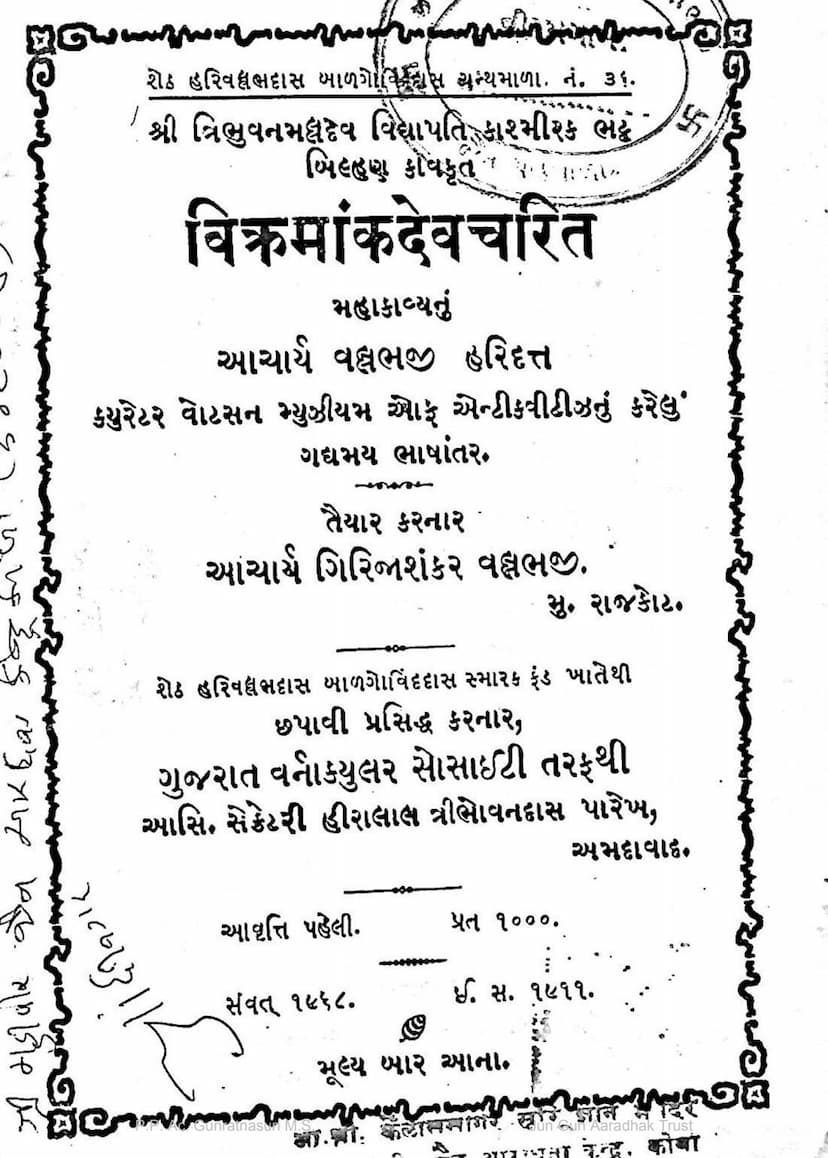 શેઠ હરિવલ્લભદાસ બાળગોવિંદદાસ ગ્રન્થમાળા. નં. ૩૬.
શ્રી ત્રિભુવનમલ્લદેવ વિદ્યાપતિ કાશ્મીરક ભટ્ટ
બિલ્હણ કવિકૃત
વિક્રમાંકદેવચરિત
મહાકાવ્યનું
આચાર્ય વલ્લભજી હરિદત્ત
ક્યુરેટર વોટસન મ્યુઝીયમ ઑફ ઍન્ટીકવીટીઝનું કરેલું
ગદ્યમય ભાષાંતર.
તૈયાર કરનાર
આચાર્ય ગિરિજાશંકર વલ્લભજી.
મુ. રાજકોટ.
શેઠ હરિવલ્લભદાસ બાળગોવિંદદાસ સ્મારક ફંડ ખાતેથી
છપાવી પ્રસિદ્ધ કરનાર,
ગુજરાત વર્નાક્યુલર સોસાઈટી તરફથી
આસિ. સેક્રેટરી હીરાલાલ ત્રીભોવનદાસ પારેખ,
અમદાવાદ.
આવૃત્તિ પહેલી. પ્રત ૧૦૦૦.
સંવત્ ૧૯૬૮. ઈ. સ. ૧૯૧૧.
મૂલ્ય બાર આના.
P.P. Ac. Gunratnasuri M.S. Jun Gun Aaradhak Trust
આ.શ્રી. કૈલાસસાગર સૂરિ જ્ઞાન મંદિર
કેન્દ્ર, કોબા